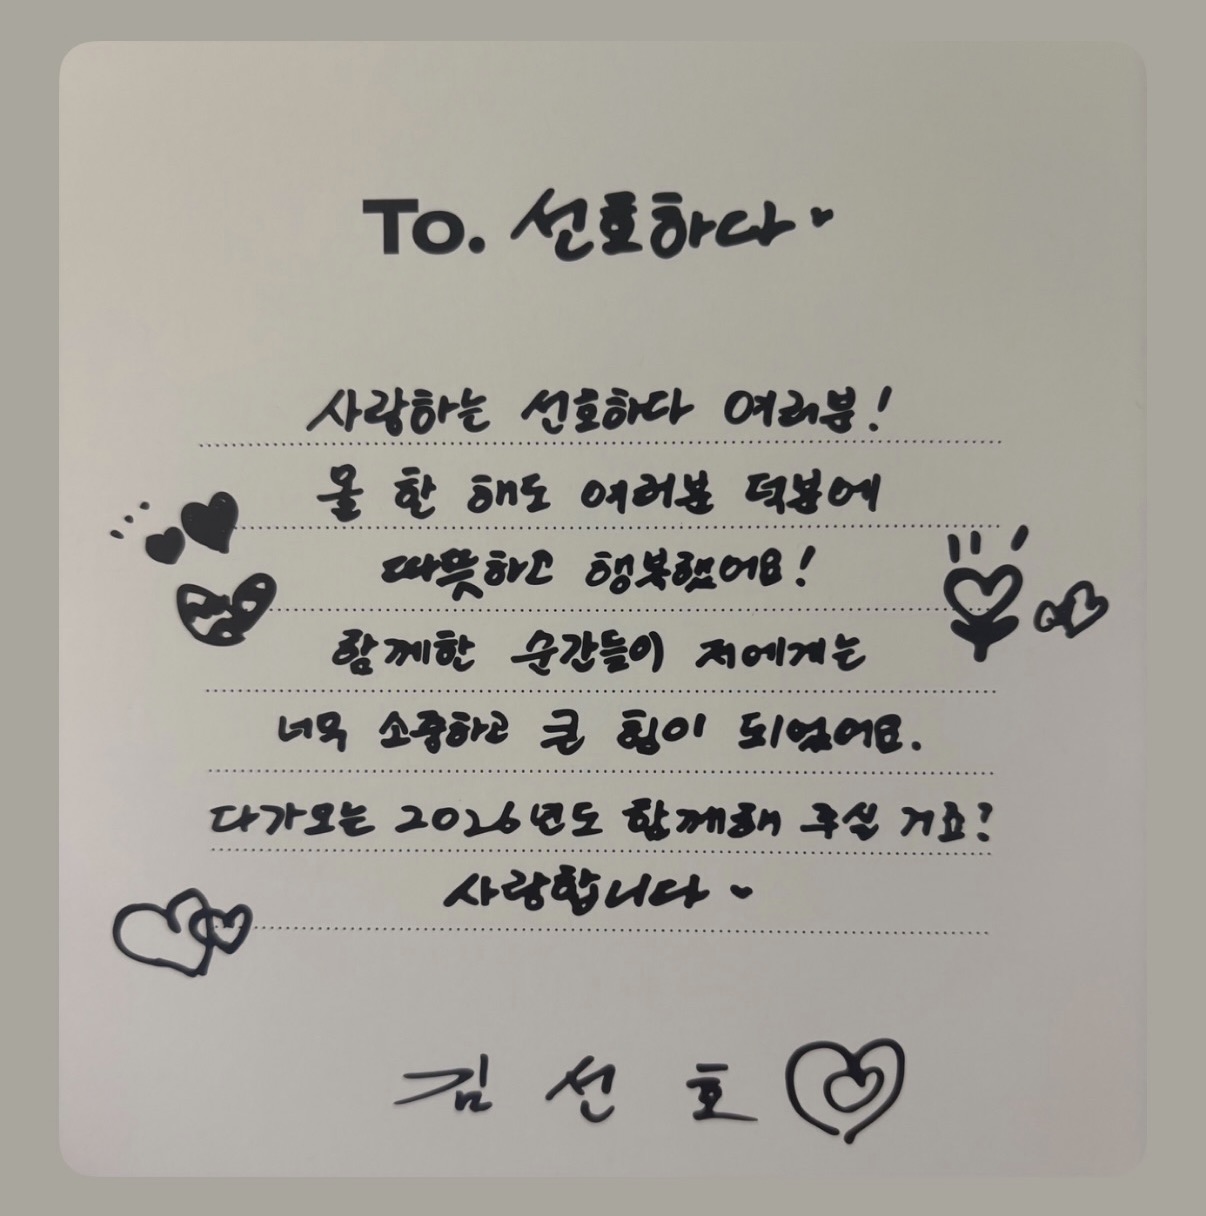 To. 선호하다
사랑하는 선호하다 여러분!
올 한 해도 여러분 덕분에
따뜻하고 행복했어요!
함께한 순간들이 저에게는
너무 소중하고 큰 힘이 되었어요.
다가오는 2026년도 함께해 주실 거죠?
사랑합니다
김선호